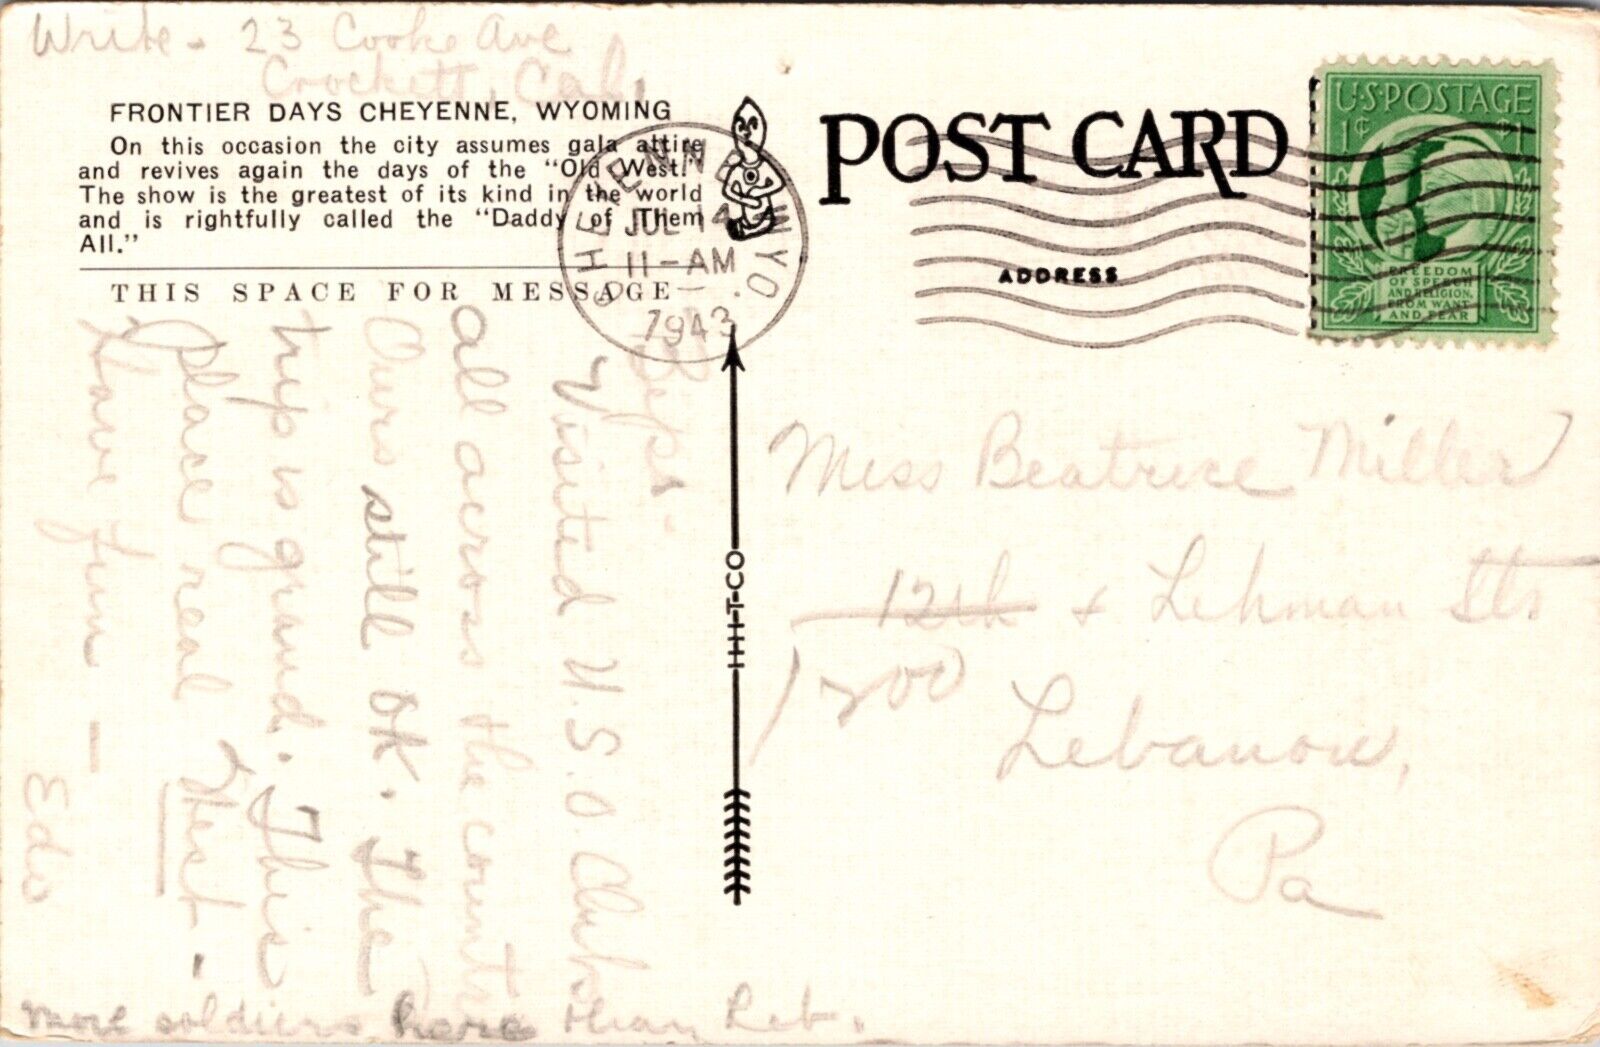 Write - 23 Cooke Ave
Crockett, Cal.
FRONTIER DAYS CHEYENNE, WYOMING
On this occasion the city assumes gala attire
and revives again the days of the "Old West."
The show is the greatest of its kind in the world
and is rightfully called the "Daddy of Them
All."
THIS SPACE FOR MESSAGE
Visited U.S.O. Club
all across the country
Ours still OK. The
trip is grand. This
place real West -
Have fun -
Edw
More soldiers here than Leb.
CHEYENNE, WYO.
JUL 14
11-AM
1943
POST CARD
ADDRESS
U.S. POSTAGE
1¢ 1
FREEDOM
OF SPEECH
AND RELIGION,
FROM WANT
AND FEAR
Miss Beatrice Miller
12th & Lehman Sts
1200
Lebanon,
Pa